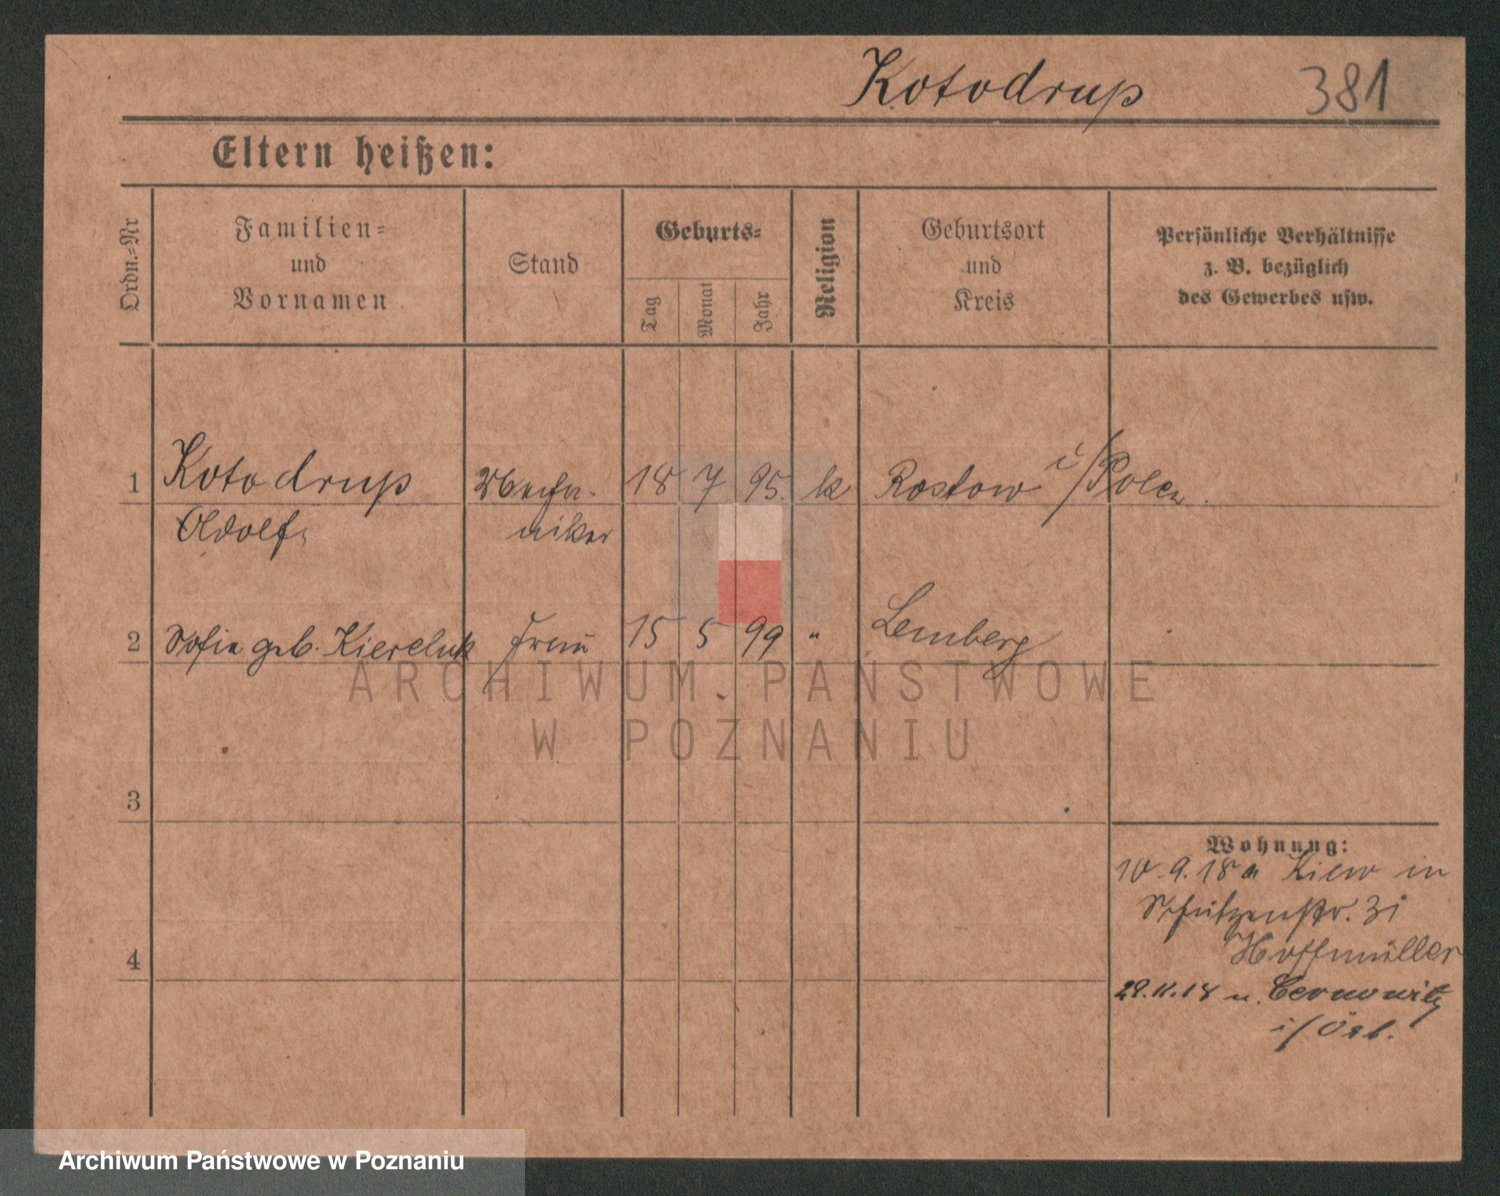 Kotodrup 381
Eltern heißen:
Ordn.-Nr
Familien-
und
Vornamen
Stand
Geburts-
Tag
Monat
Jahr
Religion
Geburtsort
und
Kreis
Persönliche Verhältnisse
z. B. bezüglich
des Gewerbes usw.
1 Kotodrup Mecha- 18 7 95. k Rostow i/Polen
Adolf niker
2 Sofie geb. Kiereluk Frau 15 5 99 " Lemberg
3
4
Wohnung:
10.9.18 a Kiew in
Schützenstr. 31
Hoffmüller
28.11.18 n. Cernowitz
i/Öst.
ARCHIWUM PAŃSTWOWE
W POZNANIU
Archiwum Państwowe w Poznaniu